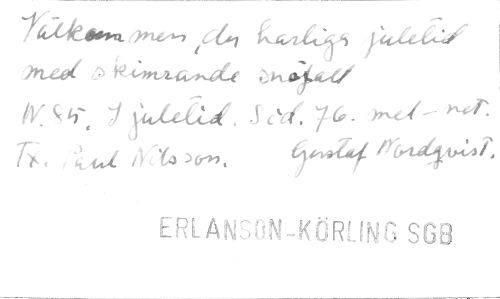 Välkommen, du härliga juletid
med skimrande snöfall
N. 85. I juletid. Sid. 76. mel-not.
Tx. Paul Nilsson. Gustaf Nordqvist.
ERLANSON-KÖRLING SGB